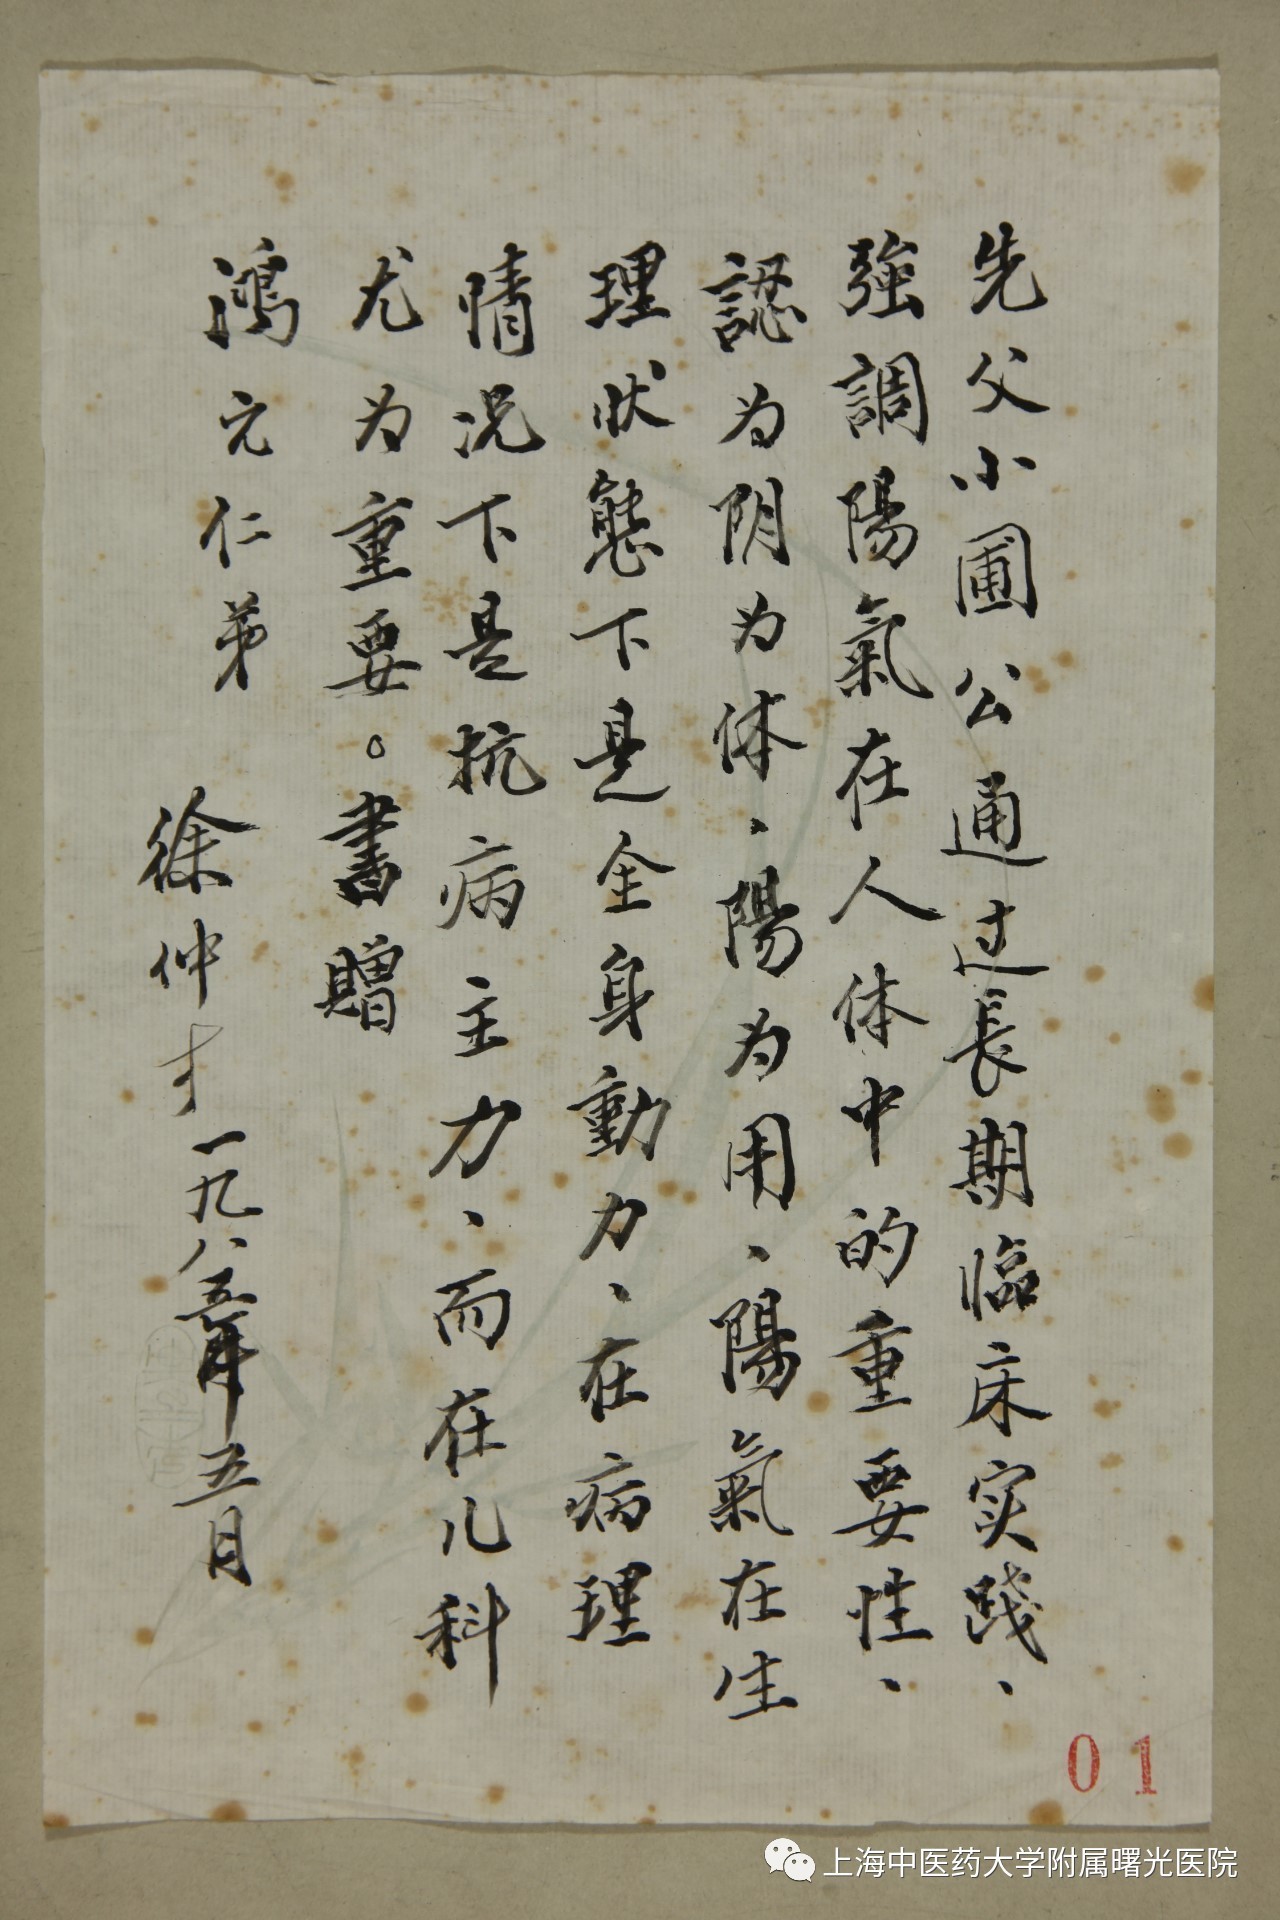 先父小圃公通过長期臨床实践、
強調陽氣在人体中的重要性、
認为阴为体、陽为用、陽氣在生
理狀態下是全身動力、在病理
情况下是抗病主力、而在儿科
尤为重要。書贈
鴻元仁弟
徐仲才
一九八五年五月
01
上海中医药大学附属曙光医院